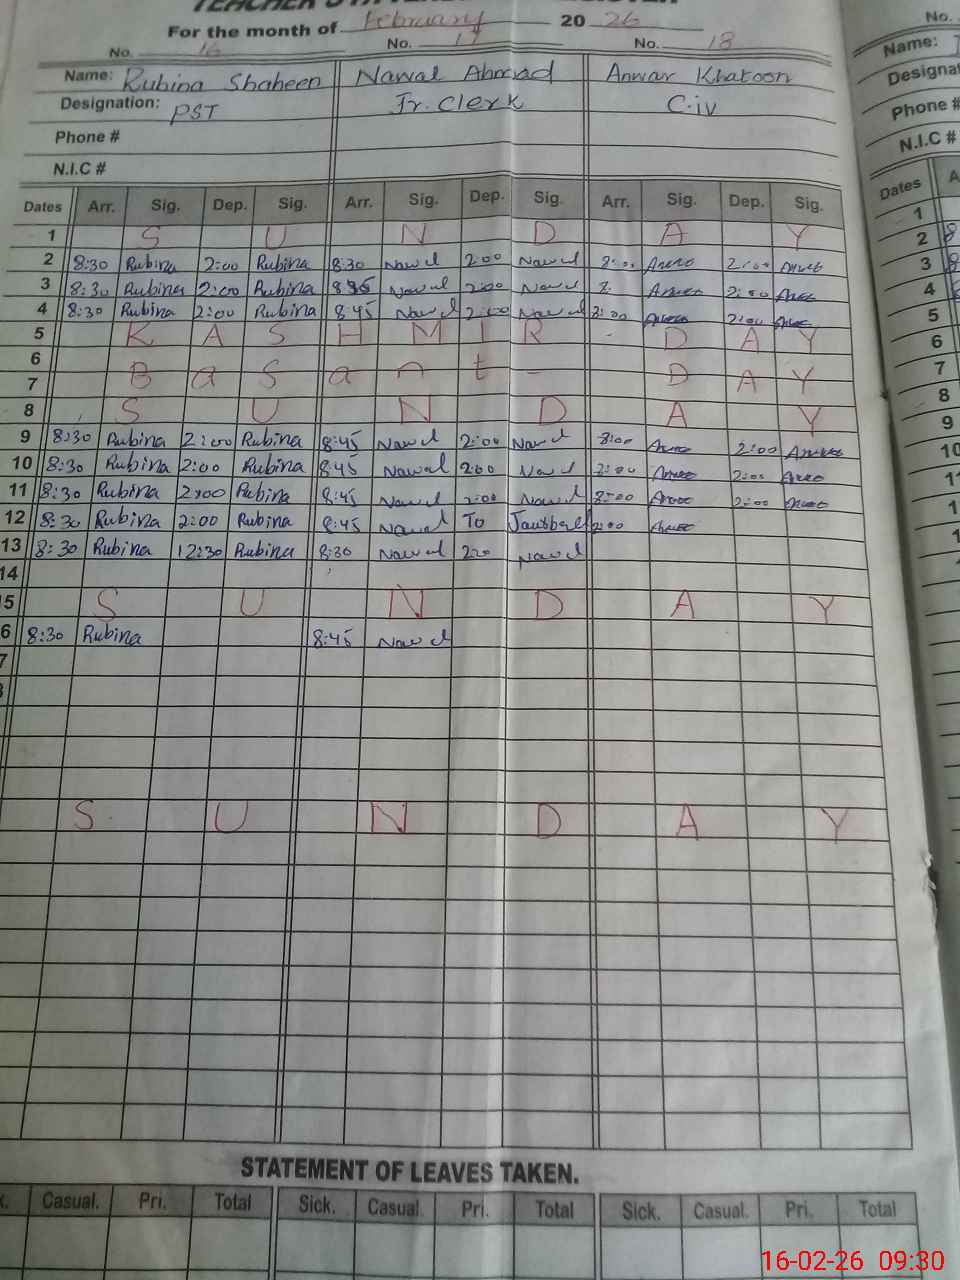 For the month of February 20 26
No. 16 No. 17 No. 18
Name: Rubina Shaheen Nawal Ahmad Anwar Khatoon
Designation: PST Jr. Clerk C-iv
Phone #
N.I.C #
Dates Arr. Sig. Dep. Sig. Arr. Sig. Dep. Sig. Arr. Sig. Dep. Sig.
1 S U N D A Y
2 8:30 Rubina 2:00 Rubina 8:30 Nawal 2:00 Nawal 8:00 2:00
3 8:30 Rubina 2:00 Rubina Nawal 2:00 Nawal 8: 2:00
4 8:30 Rubina 2:00 Rubina 8:45 Nawal 2:00 Nawal 2:00
5 K A S H M I R - D A Y
6
7 B a S a n t - D A Y
8 S U N D A Y
9 8:30 Rubina 2:00 Rubina 8:45 Nawal 2:00 Nawal 8:00 2:00
10 8:30 Rubina 2:00 Rubina 8:45 Nawal 2:00 Nawal 2:00
11 8:30 Rubina 2:00 Rubina 8:45 Nawal 2:00 Nawal 8:00 2:00
12 8:30 Rubina 2:00 Rubina 8:45 Nawal To
13 8:30 Rubina 12:30 Rubina 8:30 Nawal Nawal
14
5 S U N D A Y
6 8:30 Rubina 8:45 Nawal
7
S U N D A Y
STATEMENT OF LEAVES TAKEN.
Casual. Pri. Total Sick. Casual. Pri. Total Sick. Casual. Pri. Total
No.
Name:
Designa
Phone #
N.I.C #
Dates A
1
2 8
3 8
4
5
6
7
8
9
10
1
1
1
16-02-26 09:30